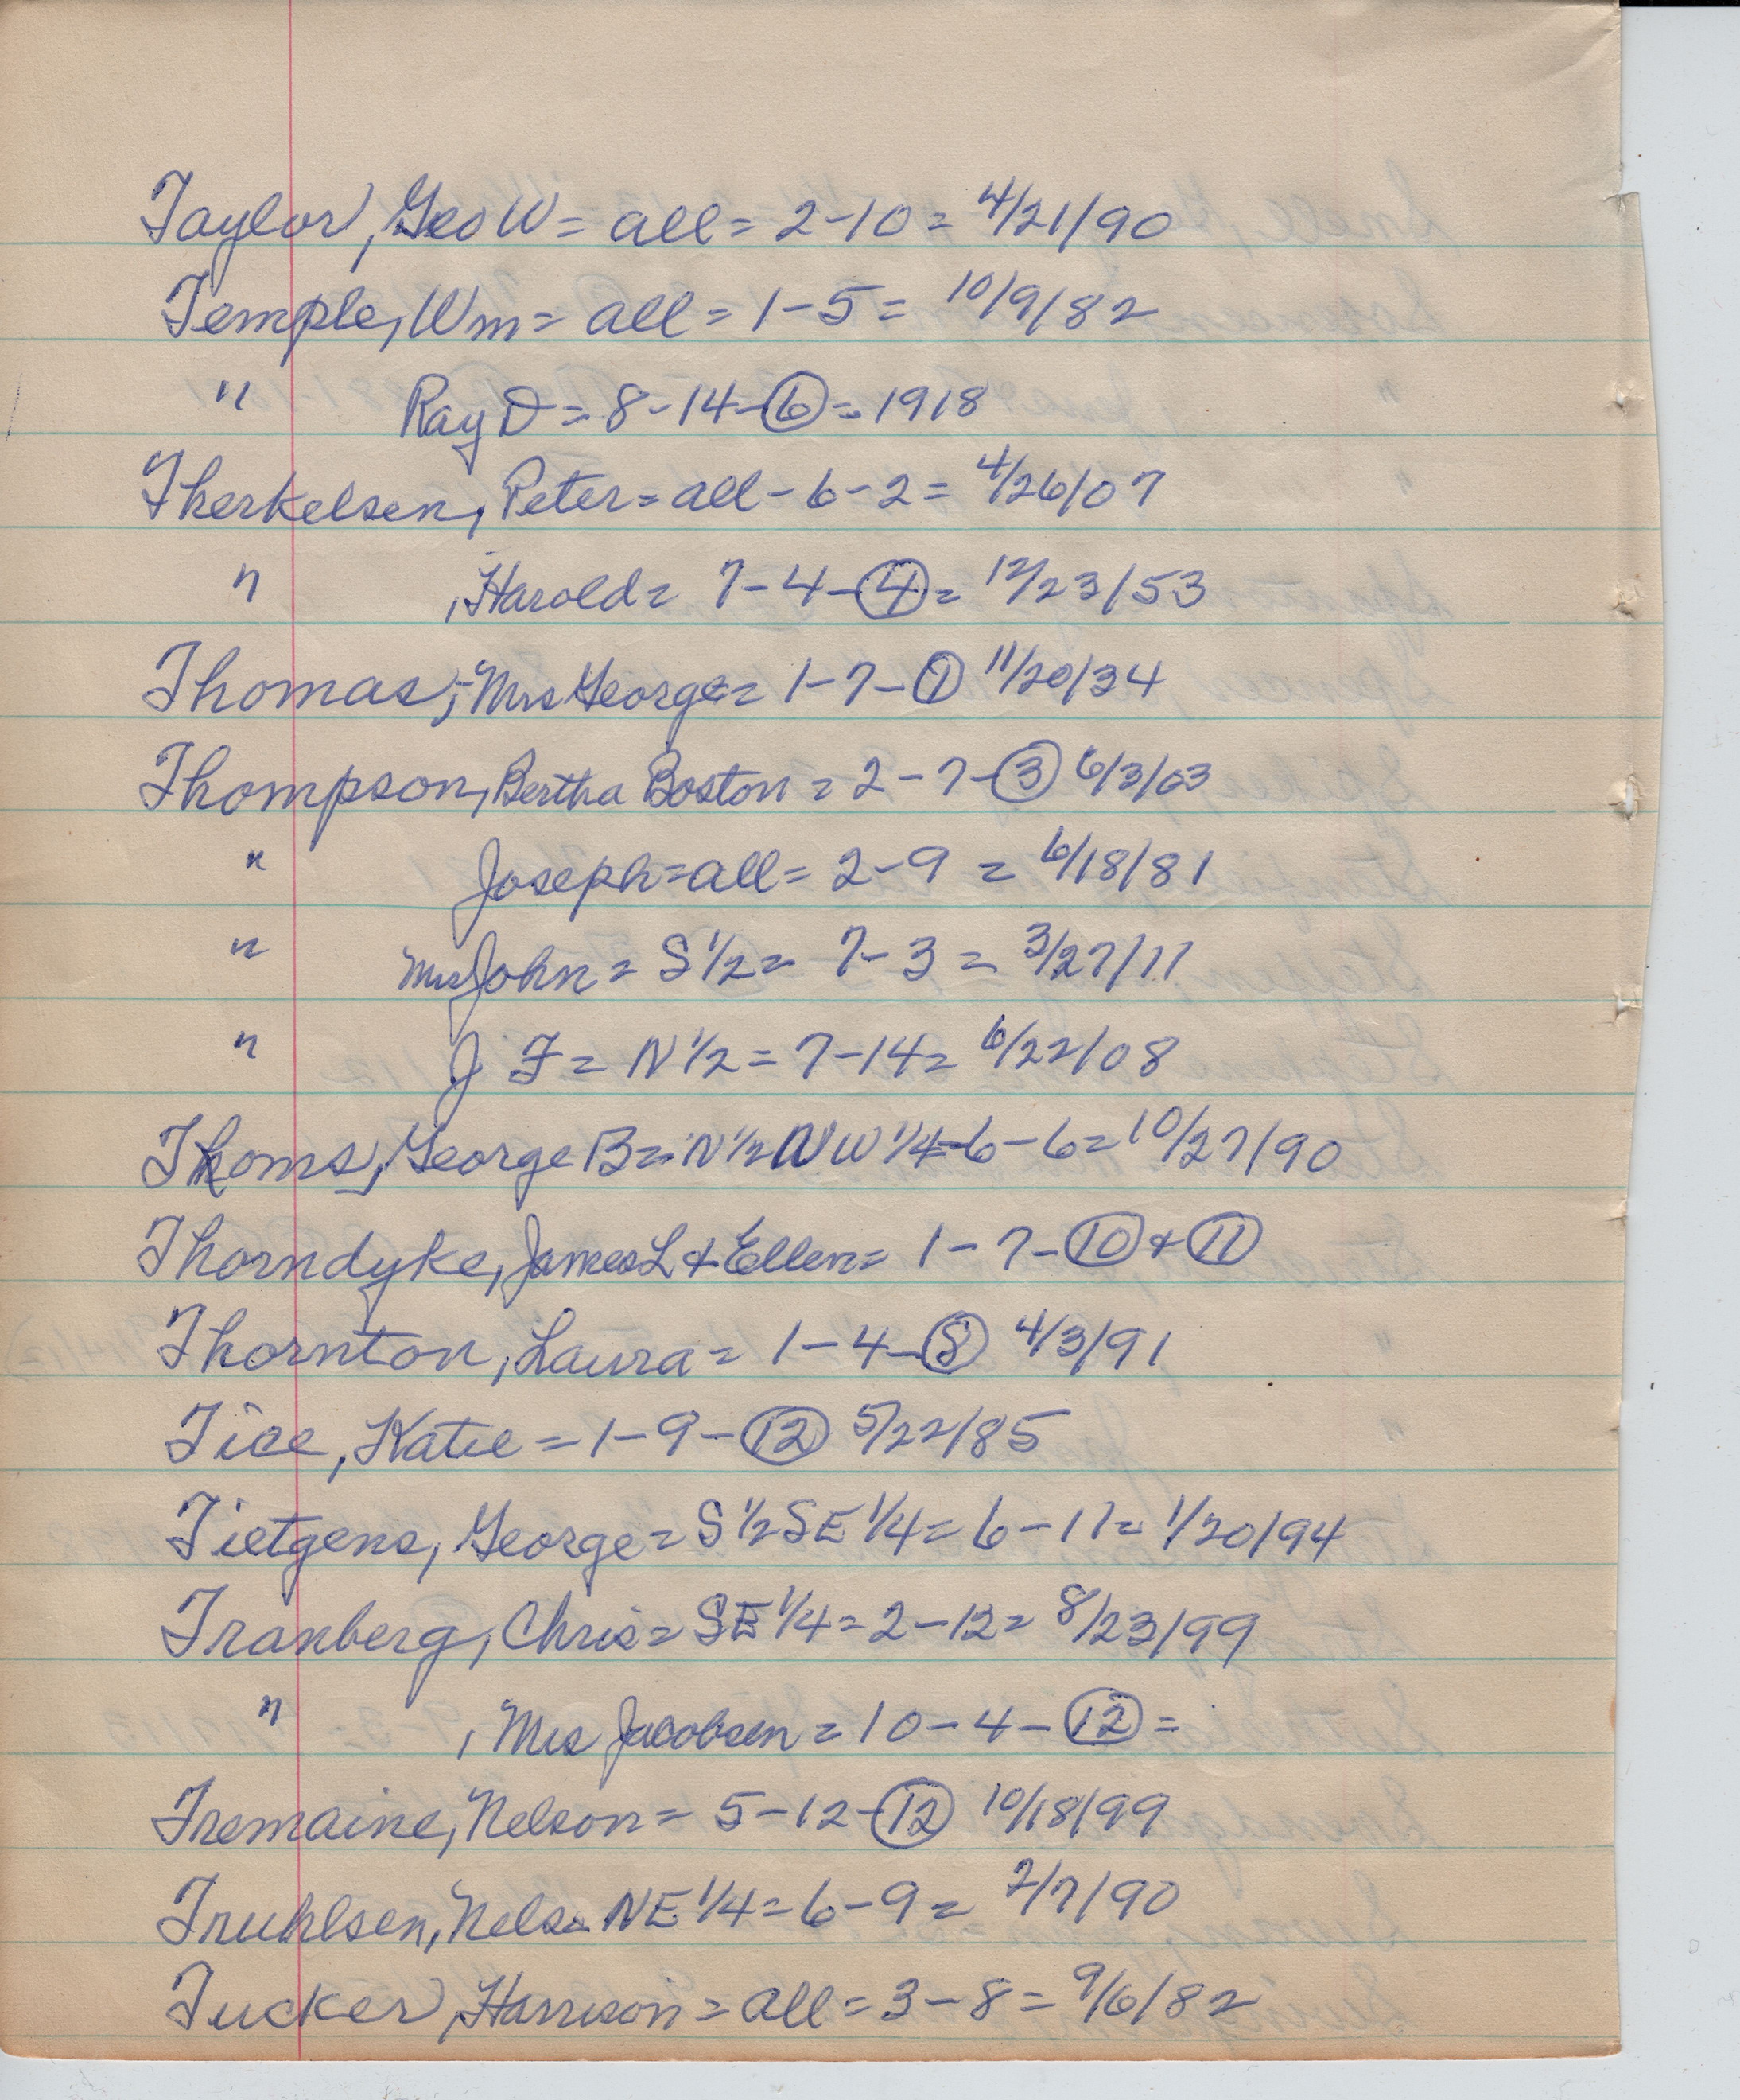 Taylor, Geo W = all = 2-10 = 4/21/90
Temple, Wm = all = 1-5 = 10/9/82
" Ray D = 8-14-⑥ = 1918
Therkelsen, Peter = all - 6-2 = 4/26/07
" , Harold = 7-4-④ = 12/23/53
Thomas, Mrs George = 1-7-① 11/20/34
Thompson, Bertha Boston = 2-7-③ 6/3/03
" Joseph = all = 2-9 = 6/18/81
" Mrs John = S 1/2 = 7-3 = 3/27/11
" J F = N 1/2 = 7-14 = 6/22/08
Thoms, George B = N 1/2 NW 1/4 = 6-6 = 10/27/90
Thorndyke, James L & Ellen = 1-7-⑩ & ⑪
Thornton, Laura = 1-4-⑧ 4/3/91
Tice, Katie = 1-9-⑫ 5/22/85
Tietgens, George = S 1/2 SE 1/4 = 6-11 = 1/20/94
Tranberg, Chris = SE 1/4 = 2-12 = 8/23/99
" , Mrs Jacobsen = 10-4-⑫ =
Tremaine, Nelson = 5-12-⑫ 10/18/99
Truhlsen, Nels = NE 1/4 = 6-9 = 2/7/90
Tucker, Harrison = all = 3-8 = 9/6/82